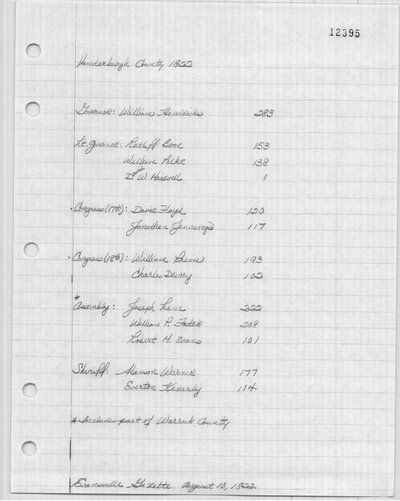 12395
Vanderburgh County 1822
Governor: William Hendricks 283
Lt. Governor: Ratliff Boon 153
William Polke 138
W. Maxwell 1
Congress (17th): Davis Floyd 120
Jonathan Jennings 117
Congress (18th): William Prince 193
Charles Dewey 102
*Assembly: Joseph Lane 222
William P. Foster 208
Robert M. Evans 101
Sheriff: Alanson Warner 177
Everton Kenerly 114
* Include part of Warrick County
Evansville Gazette. August 10, 1822.